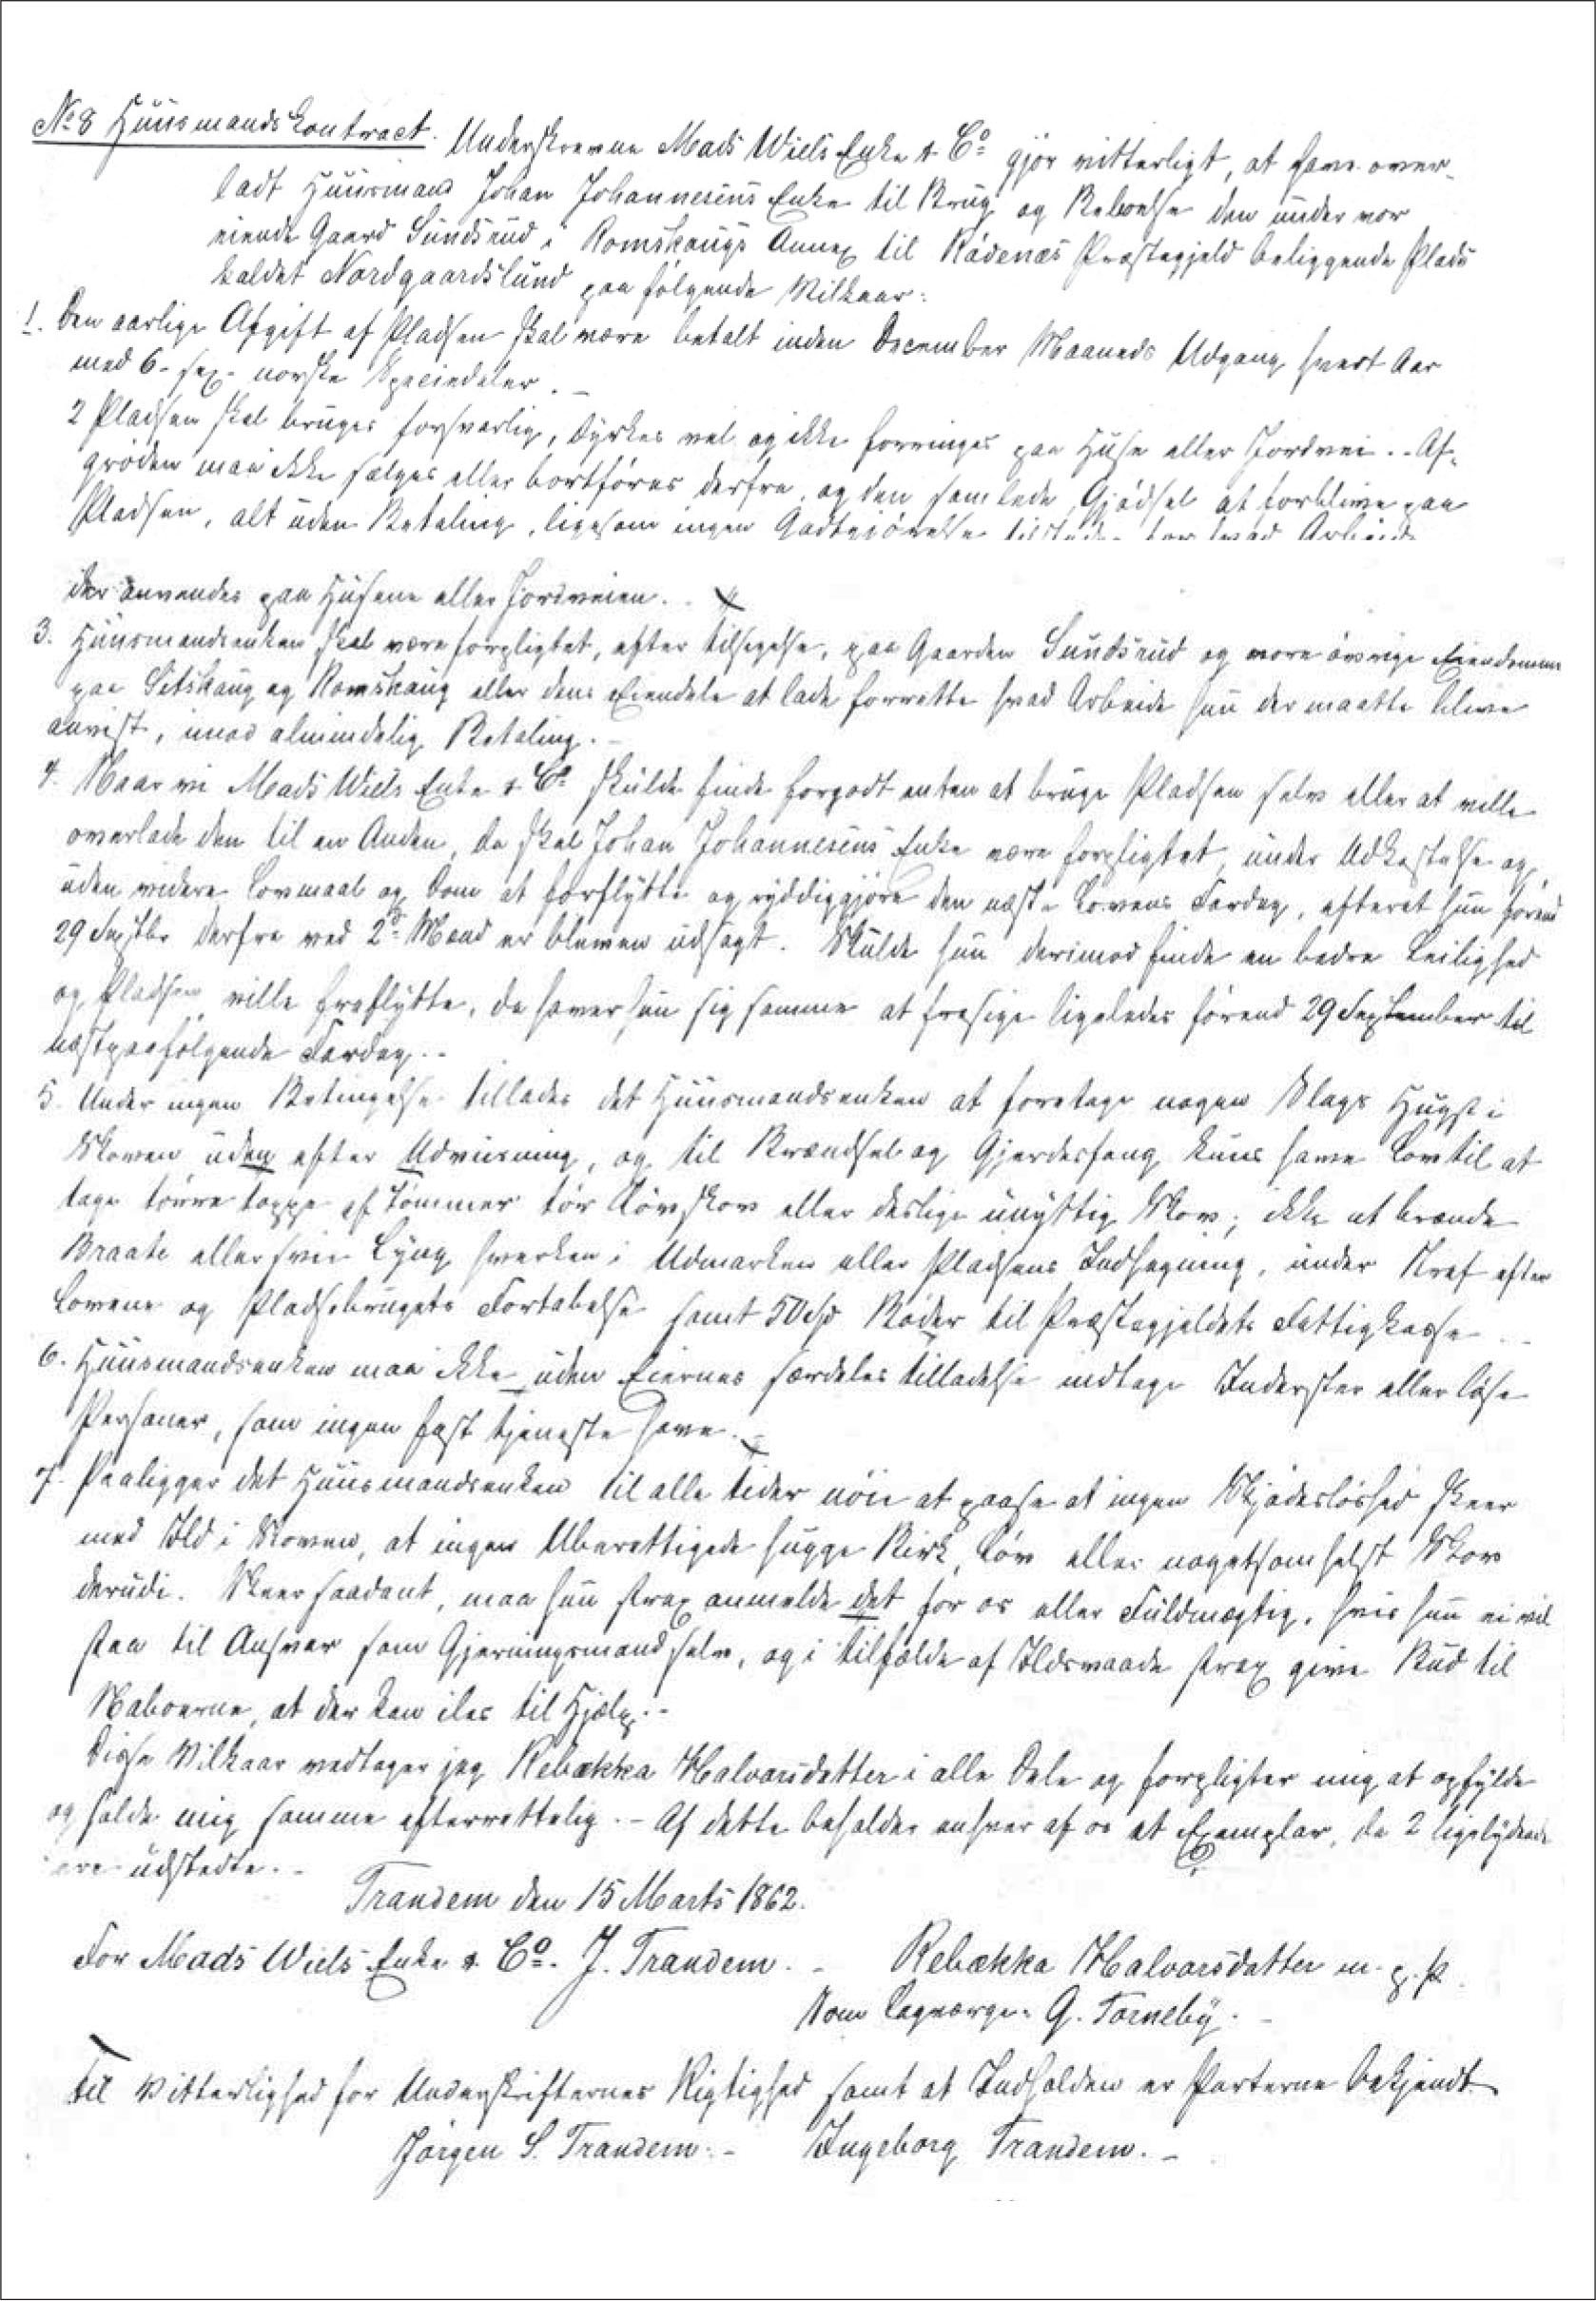 No 8 Huusmandskontract. Underskrevne Mads Wiels Enke & Co gjör vitterligt, at have over-
ladt Huusmand Johan Johannesens Enke til Brug og Beboelse den under vor
eiende Gaard Sundsrud i Romskougs Annex til Rödenæs Præstegjeld beliggende Plads
kaldet Nordgaardslund paa følgende Vilkaar:
1. Den aarlige Afgift af Pladsen skal være betalt inden December Maaneds Udgang hvert Aar
med 6- sex- norske Speciedaler. -
2 Pladsen skal bruges forsvarlig, dyrkes vel og ikke forringes paa Huse eller Jordvei. - Af-
gröden maa ikke sælges eller bortföres derfra, og den samlede Gjödsel at forblive paa
Pladsen, alt uden Betaling, ligesom ingen Godtgjörelse tilstaaes for hvad Arbeide
der anvendes paa Husene eller Jordveien. -
3. Huusmandsenken skal være forpligtet, efter Tilsigelse, paa Gaarden Sundsrud og vore övrige Eiendomme
paa Sitskoug og Romskoug eller dens Eiendele at lade forrette hvad Arbeide hun der maatte blive
anvist, imod almindelig Betaling. -
4. Naar vi Mads Wiels Enke & Co skulde finde forgodt enten at bruge Pladsen selv eller at ville
overlade den til en Anden, da skal Johan Johannesens Enke være forpligtet, under Udkastelse og
uden videre Lovmaal og Dom at forflytte og ryddiggjöre den næste Lovens Fardag, efterat hun förend
29 Septbr derfra ved 2de Mænd er bleven udsagt. Skulde hun derimod finde en bedre Leilighed
og Pladsen ville fraflytte, da haver hun sig samme at frasige ligeledes förend 29 September til
næstpaafölgende Fardag. -
5. Under ingen Betingelse tillades det Huusmandsenken at foretage nogen Slags Hugst i
Skoven uden efter Udviisning, og til Brændsel og Gjerdesfang kuns have Lov til at
tage törre Toppe af Tömmer tör Lövskov eller deslige unyttig Skov; ikke at brænde
Braate eller svie Lyng hverken i Udmarken eller Pladsens Indhegning, under Straf efter
Lovene og Pladsebrugets Fortabelse samt 50 Spd Böder til Præstegjeldets Fattigkasse. -
6. Huusmandsenken maa ikke uden Eiernes særdeles Tilladelse indtage Inderster eller löse
Personer, som ingen fast Tjeneste have. -
7. Paaligger det Huusmandsenken til alle Tider nöie at paase at ingen Skjödeslöshed skeer
med Ild i Skoven, at ingen Uberettigede hugge Birk, Löv eller nogetsomhelst Skov
derudi. Skeer saadant, maa hun strax anmelde det for os eller Fuldmægtig, hvis hun ei vil
staa til Ansvar som Gjerningsmand selv, og i Tilfælde af Ildsvaade strax give Bud til
Naboerne, at der kan iles til Hjælp. -
Disse Vilkaar vedtager jeg Rebækka Halvorsdatter i alle Dele og forpligter mig at opfylde
og holde mig samme efterrettelig. - Af dette beholder enhver af os et Exemplar, da 2 ligelydende
ere udstedte. -
Trandem den 15 Marts 1862.
For Mads Wiels Enke & Co. J. Trandem. - Rebækka Halvorsdatter m. p. P.
Som Lagværge: G. Törneby. -
Til Vitterlighed for Underskrifternes Rigtighed samt at Indholden er Parterne bekjendt
Jörgen S. Trandem. - Ingeborg Trandem. -